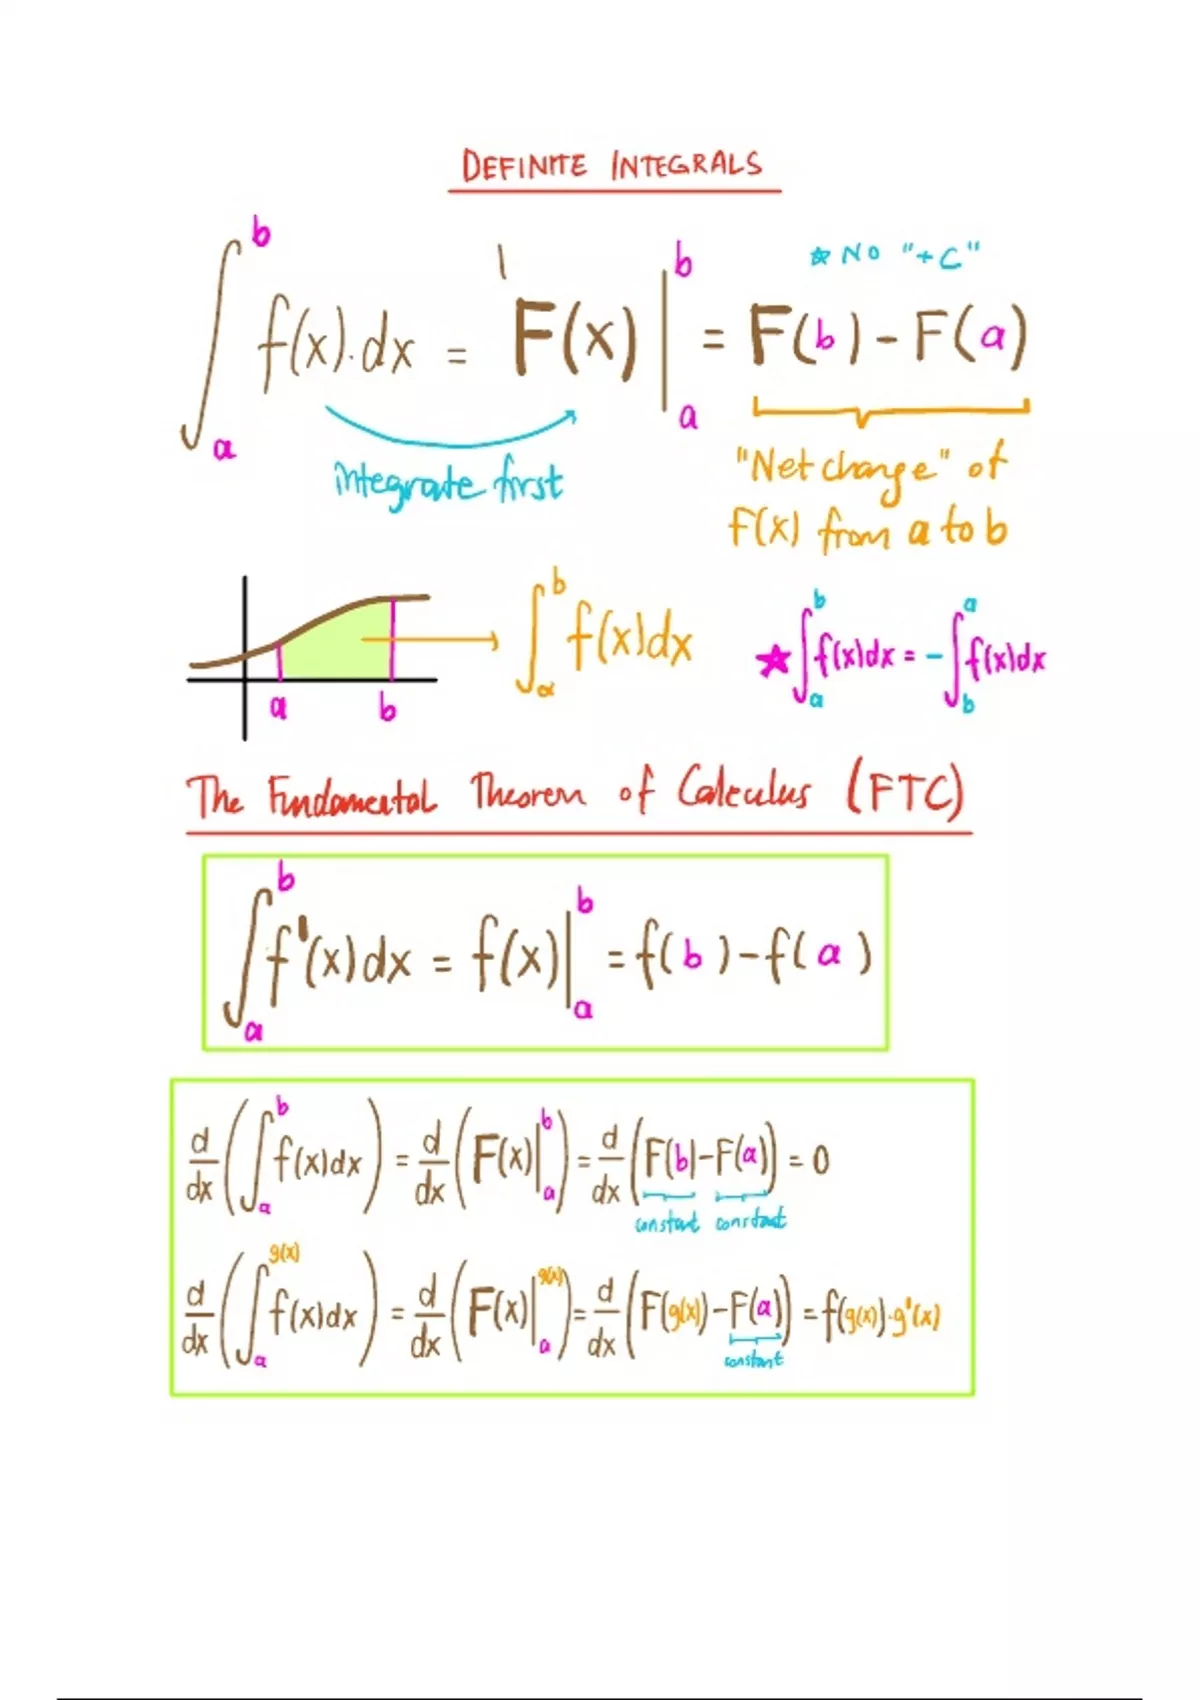 DEFINITE INTEGRALS
∫_a^b f(x).dx = F(x) |_a^b = F(b) - F(a)
☆ NO "+C"
integrate first
"Net change" of
F(x) from a to b
∫_a^b f(x)dx
★ ∫_a^b f(x)dx = - ∫_b^a f(x)dx
a b
The Fundamental Theorem of Calculus (FTC)
∫_a^b f'(x)dx = f(x)|_a^b = f(b) - f(a)
d/dx (∫_a^b f(x)dx) = d/dx (F(x)|_a^b) = d/dx (F(b) - F(a)) = 0
constant constant
d/dx (∫_a^g(x) f(x)dx) = d/dx (F(x)|_a^g(x)) = d/dx (F(g(x)) - F(a)) = f(g(x)).g'(x)
constant